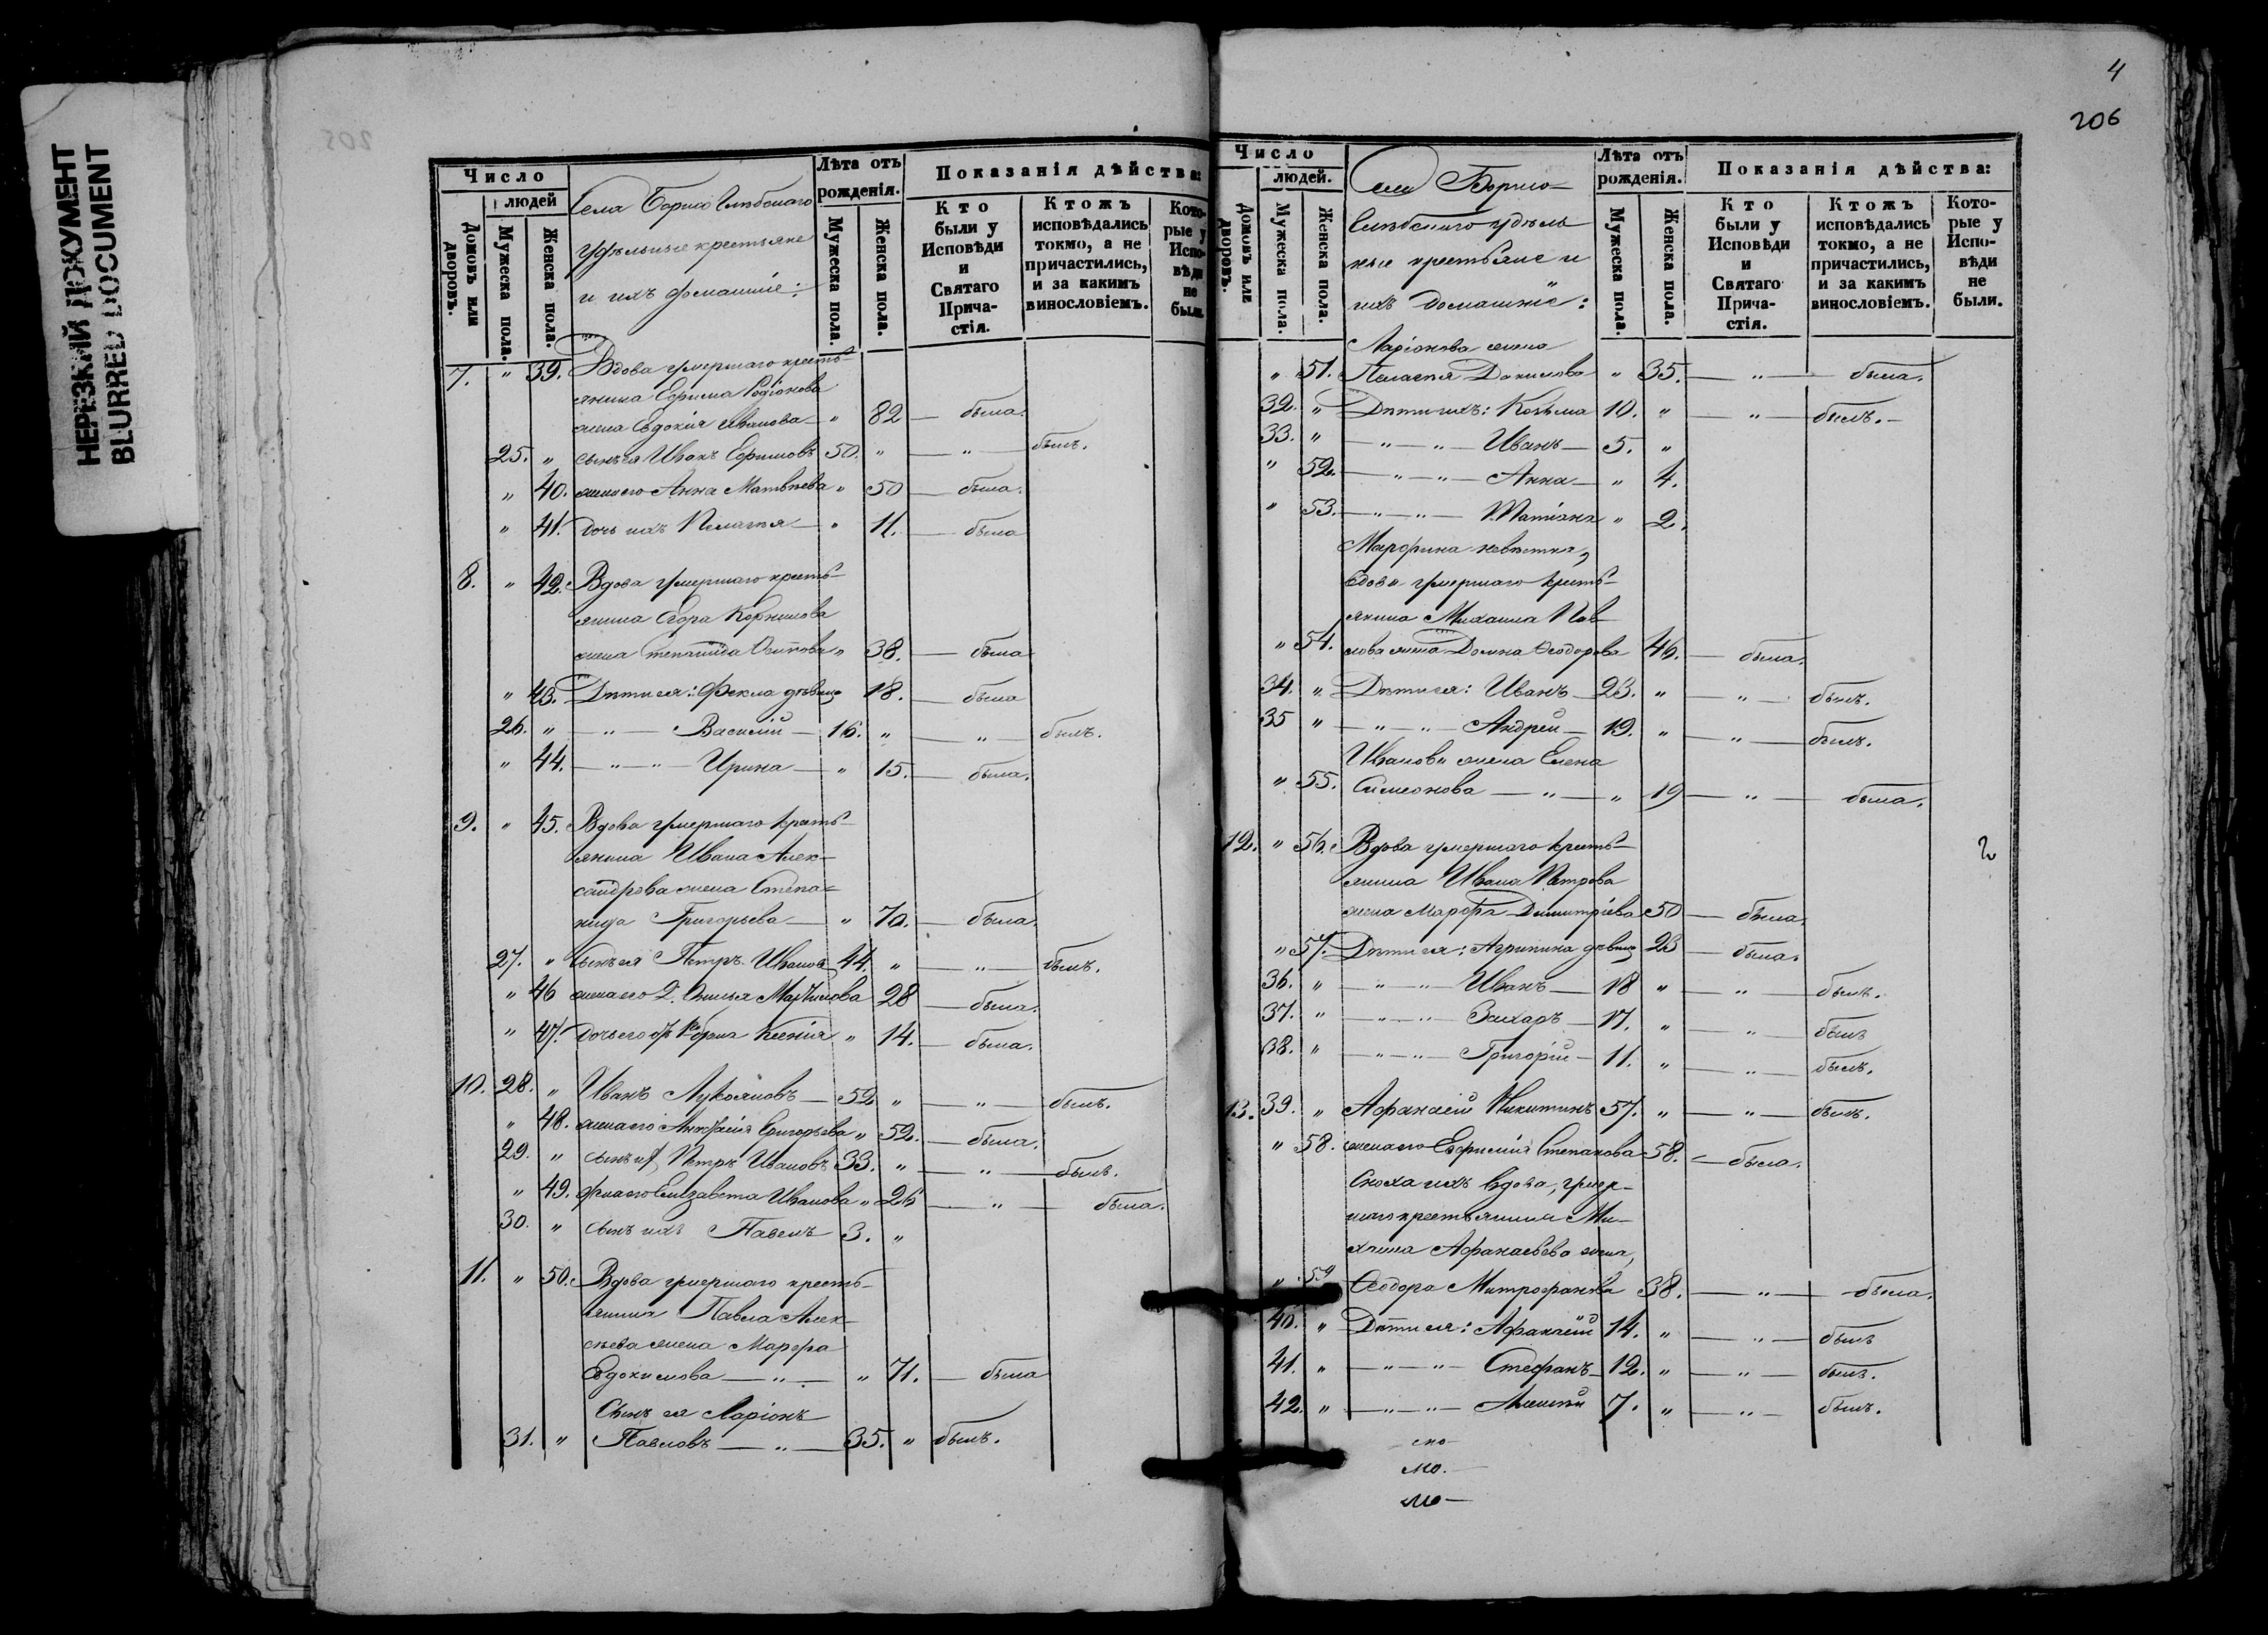 НЕРЕЗКИЙ ДОКУМЕНТ
BLURRED DOCUMENT
Число
людей
Домовъ или дворовъ.
Мужеска пола.
Женска пола.
Села Борисо Глѣбскаго
удѣльные крестьяне
и ихъ домашніе:
Лѣта отъ рожденія.
Мужеска пола.
Женска пола.
Показанія дѣйства:
Кто были у Исповѣди и Святаго Причастія.
Ктожъ исповѣдались токмо, а не причастились, и за какимъ винословіемъ.
Которые у Исповѣди не были.
7. " 39. Вдова умершаго кресть-
янина Ефима Родіонова
жена Евдокія Иванова " 82 — была.
25. " сынъ ея Иванъ Ефимовъ 50. " — " — былъ.
" 40. жена его Анна Матвѣева " 50 — была.
" 41. дочь ихъ Пелагея — " 11. — была
8. " 42. Вдова умершаго кресть-
янина Егора Корнилова
жена Степанида Осипова " 38. — была
" 43. Дѣти ея: Фекла дѣвица 18. — была
26. " — " — Василій — 16. " — " — былъ.
" 44. — " — " — Ирина — " 15. — была.
9. " 45. Вдова умершаго кресть-
янина Ивана Алек-
сандрова жена Степа-
нида Григорьева — " 70. — была.
27. " сынъ ея Петръ Ивановъ 44. " — " — былъ.
" 46 жена его 2. Мартинова 28 — была.
" 47. дочь его отъ 1го брака Ксенія " 14. — была.
10. 28. " Иванъ Лукояновъ — 52 " — " — былъ.
" 48. жена его Анфисія Григорьева " 52. — была.
29. " сынъ их Петръ Ивановъ 33. " — " — былъ.
" 49. жена его Елизавета Иванова " 26 — " — была.
30. " сынъ ихъ Павелъ 3. "
11. " 50. Вдова умершаго кресть-
янина Павла Алек-
сѣева жена Марфа
Евдокимова — " — " 71. — была
Сынъ ея Ларіонъ
31. " Павловъ — " — 35. " былъ.
4
206
Число
людей.
Домовъ или дворовъ.
Мужеска пола.
Женска пола.
Села Борисо-
Глѣбскаго удѣль
ные крестьяне и
ихъ домашніе:
Лѣта отъ рожденія.
Мужеска пола.
Женска пола.
Показанія дѣйства:
Кто были у Исповѣди и Святаго Причастія.
Ктожъ исповѣдались токмо, а не причастились, и за какимъ винословіемъ.
Которые у Исповѣди не были.
Ларіонова жена
" 51. Пелагея Данилова " 35. — " — была.
32. " Дѣти ихъ: Козьма 10. " — " — былъ.
33. " — " — " — Иванъ — 5. "
" 52. — " — " — Анна — " 4.
" 53. — " — " — Татіана " 2.
Марфина невѣстка,
вдова умершаго кресть-
янина Михаила Пав-
" 54. лова жена Домна Ѳеодорова 46. — была.
34. " Дѣти ея: Иванъ — 23. " — " — былъ.
35 " — " — " — Андрей — 19. " — " — былъ.
Иванова жена Елена
" 55. Симеонова — " — " 19 — " — была.
12. " 56. Вдова умершаго кресть-
янина Ивана Петрова
жена Марфа Димитріева 50 — была.
" 57. Дѣти ея: Агрипина дѣвица 23 — была.
36. " — " — " — Иванъ — 18 " — " — былъ.
37. " — " — " — Захаръ — 17. " — " — былъ
38. " — " — " — Григорій — 11. " — " — былъ.
13. 39. " Афанасій Никитинъ 57. " — " — былъ.
" 58. жена его Ефимія Степанова 58. — была.
Сноха ихъ вдова, умер-
шаго крестьянина Ми-
хаила Афанасьева жена,
" 59 Ѳеодора Митрофанова 38. — " — была.
40. " Дѣти ея: Афанасій 14. " — " — былъ
41. " — " — " — Стефанъ — 12. " — " — былъ.
42. " — " — " — Алексѣй 7. " — " — былъ.